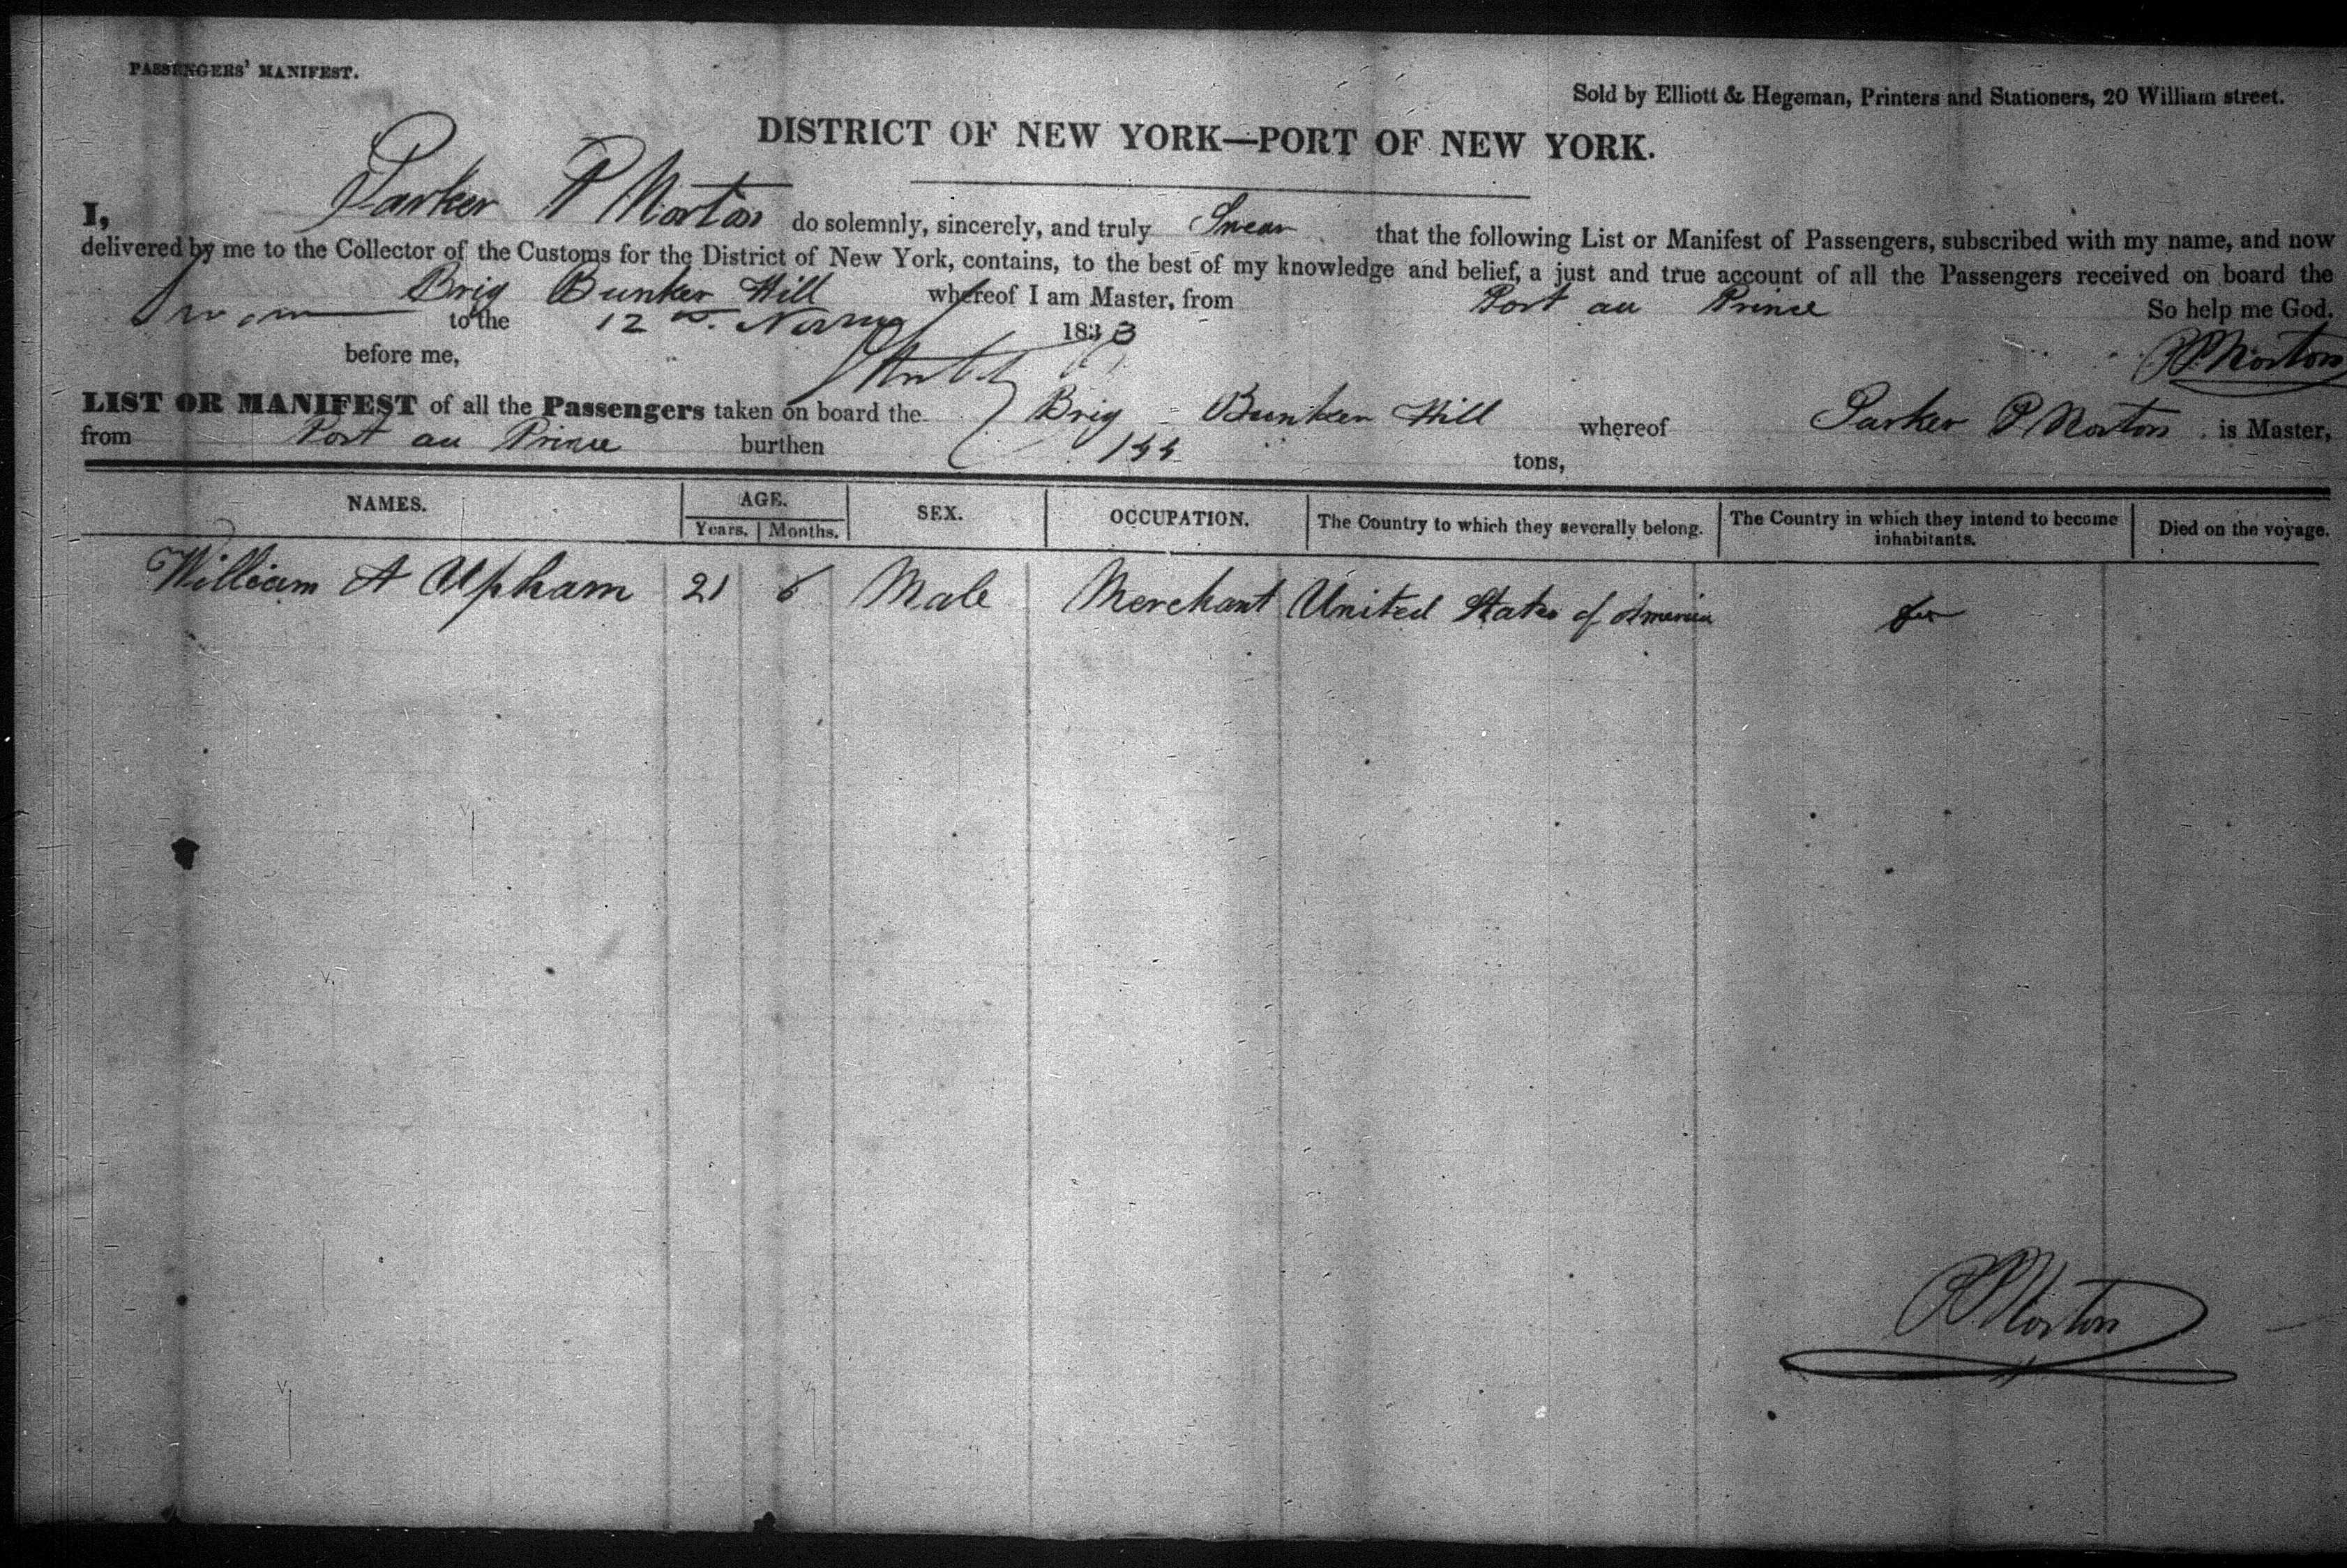 PASSENGERS' MANIFEST.
Sold by Elliott & Hegeman, Printers and Stationers, 20 William street.
DISTRICT OF NEW YORK—PORT OF NEW YORK.
I, Parker P Norton do solemnly, sincerely, and truly Swear that the following List or Manifest of Passengers, subscribed with my name, and now
delivered by me to the Collector of the Customs for the District of New York, contains, to the best of my knowledge and belief, a just and true account of all the Passengers received on board the
Brig Bunker Hill whereof I am Master, from Port au Prince So help me God.
Sworn to the 12 183
before me, P P Norton
LIST OR MANIFEST of all the Passengers taken on board the Brig Bunker Hill whereof Parker P Norton is Master,
from Port au Prince burthen tons,
NAMES. AGE. SEX. OCCUPATION. The Country to which they severally belong. The Country in which they intend to become inhabitants. Died on the voyage.
Years. Months.
William A Upham 21 6 Male Merchant United States of America
P P Norton